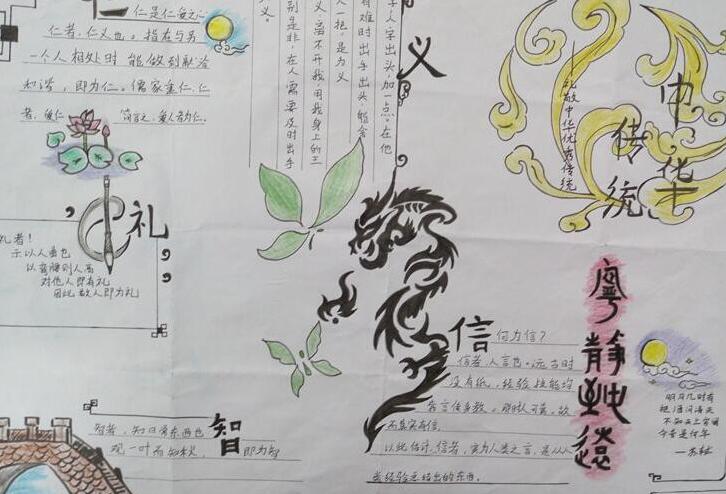 仁是仁
仁者，仁义也。指在与另
一个人相处时 能做到融洽
和谐，即为仁。儒家重仁，仁
者，爱仁 简言之，爱人者为仁。
礼
礼者！
示以人曲也
以弯腰则人高
对他人即有礼
因此敬人即为礼
义
字人字出头，加一点。在他
有难时出手出头，能舍
人一把，是为义
义，离不开我，用我身上的王
别是非，在人需要及时出手
义。
中华
传统
礼敬中华优秀传统
信
何为信？
信者，人言也。远古时
没有纸，经验技能均
靠言传身教。那时人
不真实有信
以此估计，信者，实为人类之言，是从人
类经验总结出的东西。
智
智者，知日常东西也
观一叶而知秋， 即为智
宁静致远
明月几时有
把酒问青天
不知天上宫阙
今夕是何年
—苏轼